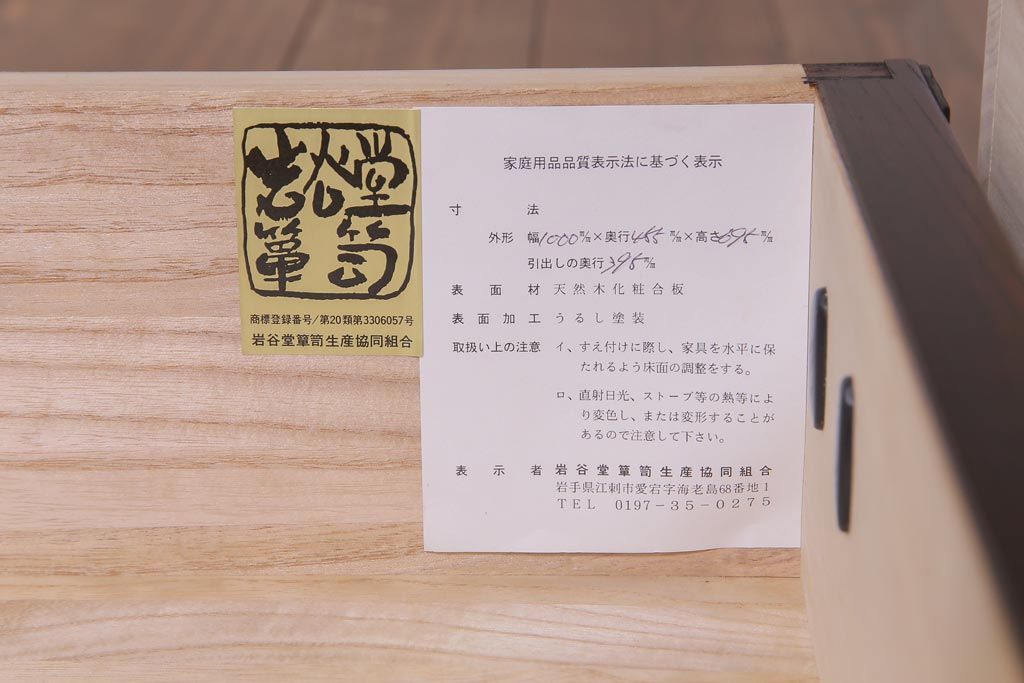 岩谷堂
簞笥
商標登録番号/第20類第3306057号
岩谷堂簞笥生産協同組合
家庭用品品質表示法に基づく表示
寸法
外形 幅1000㍉×奥行455㍉×高さ695㍉
引出しの奥行395㍉
表面材 天然木化粧合板
表面加工 うるし塗装
取扱い上の注意 イ、すえ付けに際し、家具を水平に保
たれるよう床面の調整をする。
ロ、直射日光、ストーブ等の熱等によ
り変色し、または変形することが
あるので注意して下さい。
表示者 岩谷堂簞笥生産協同組合
岩手県江刺市愛宕字海老島68番地1
TEL 0197-35-0275